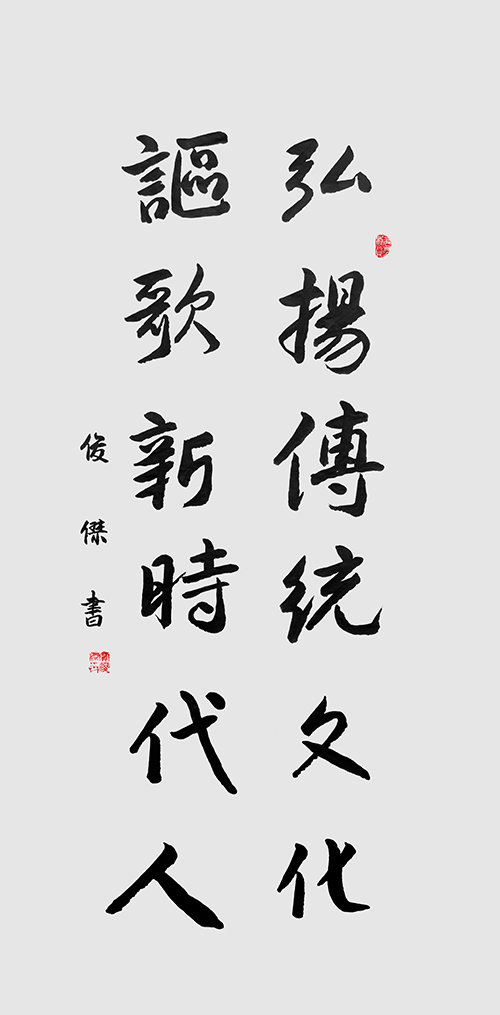 弘揚傳統文化
謳歌新時代人
俊傑書